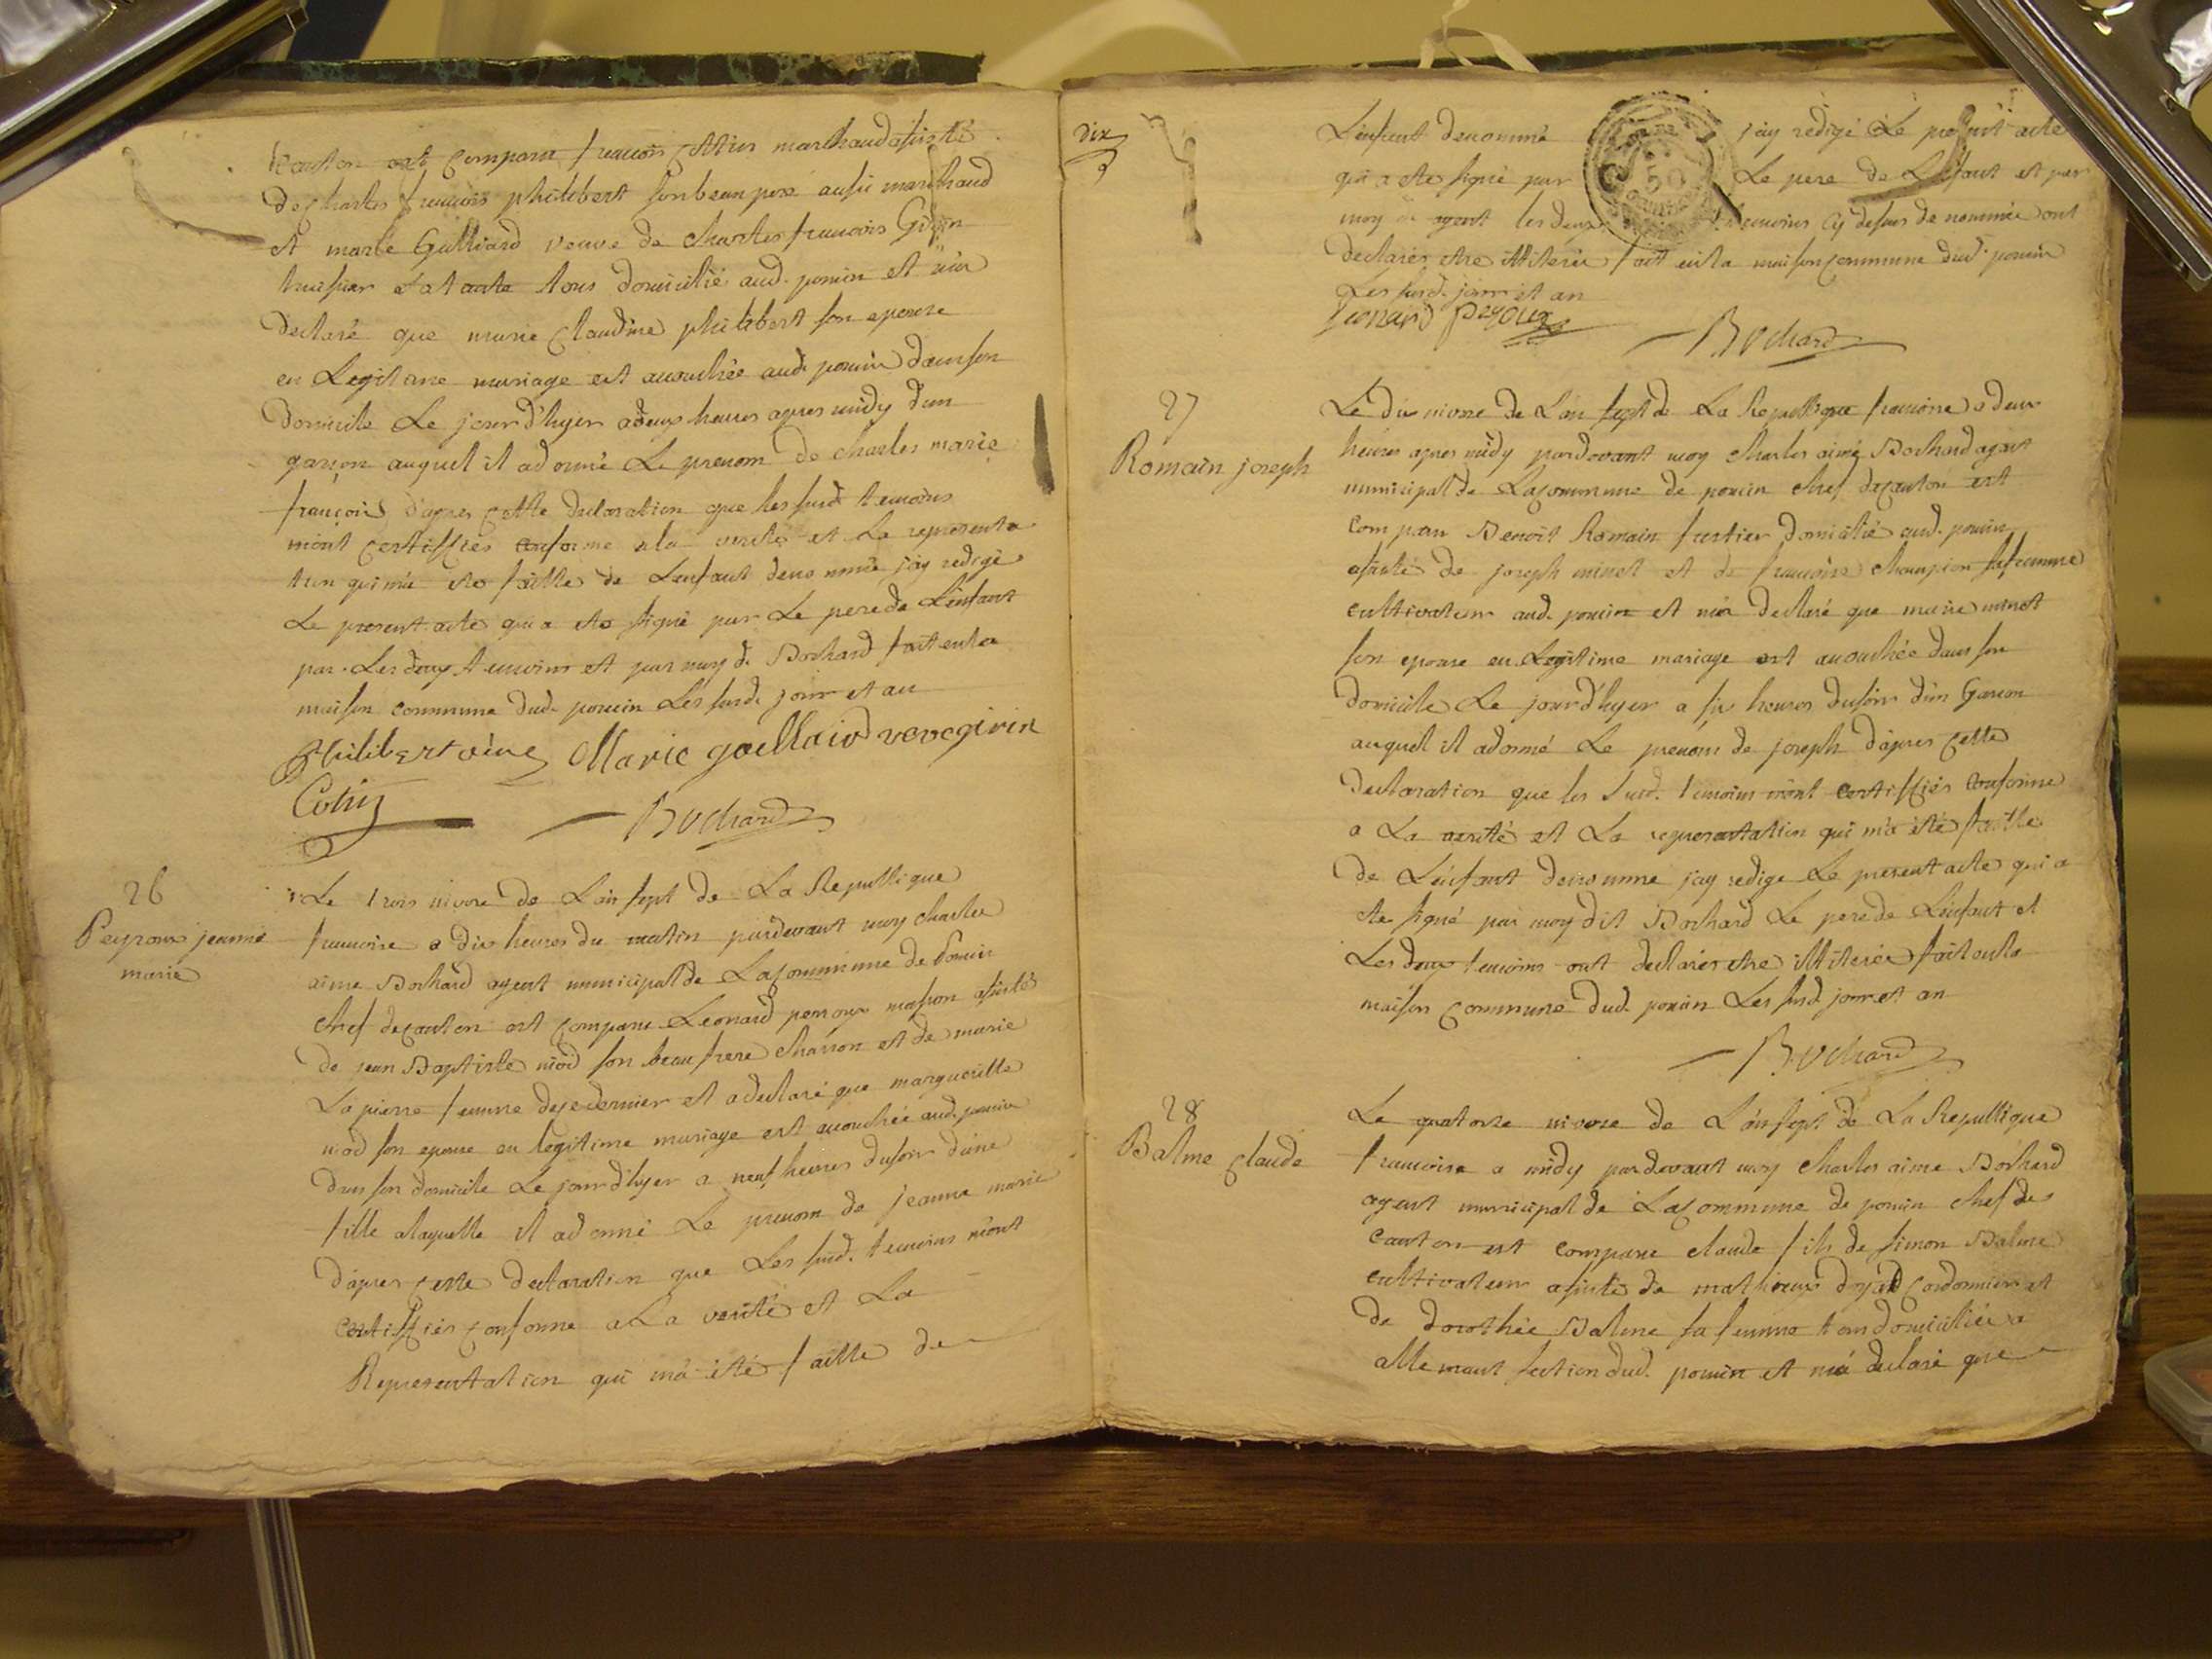 canton est comparu francois Cottin marchand assisté
de charles francois philibert son beau pere aussi marchand
et marie Gulliard veuve de charles francois Girin
huissier tous domicilié aud. poncin et m'a
declaré que marie claudine philibert son epouse
en Legitime mariage est acouchée aud. poncin dans son
domicile Le jour d'hyer a deux heures apres midy d'un
garçon auquel il a donné Le prenom de charles marie
françois d'apres cette declaration que les susd. temoins
m'ont certiffiés conforme a la verité et La representa
tion qui m'a eté faitte de Lenfant denommé j'ay redigé
Le present acte qui a eté signé par Le pere de L'enfant
par Les deux temoins et par moy d. Bochard fait en la
maison commune dud. poncin Les susd. jour et an
Philibert ainé Marie goullaird veve girin
Cotin
Bochard
26
Peyroux jeanne
marie
Le trois nivose de L'an sept de La Republique
francoise a dix heures du matin pardevant moy charles
aime Bochard agent municipal de La commune de Poncin
chef de canton est comparu Leonard peyroux masson assisté
de jean Baptiste niod son beau frere charron et de marie
Lapierre femme de ce dernier et a declaré que margueritte
niod son epouse en legitime mariage est acouchée aud. poncin
dans son domicile Le jour d'hyer a neuf heures du soir d'une
fille a laquelle il a donné Le prenom de jeanne marie
d'apres cette declaration que Les susd. temoins m'ont
certiffiés conforme a La verité et La
Representation qui m'a été faitte de
Dix
L'enfant denommé j'ay redigé Le present acte
qui a eté signé par Le pere de L'enfant et par
moy d. agent les deux temoins cy dessus denommés ont
declarés etre illiterés fait en la maison commune dud. poncin
Les susd. jour et an
Leonard peyoux
Bochard
27
Romain joseph
Le dix nivose de L'an sept de La Republique francoise a deux
heures apres midy pardevant moy charles aimé Bochard agent
municipal de La commune de poncin chef de canton est
comparu Benoit Romain domicilié aud. poncin
assisté de joseph minet et de francoise champion sa femme
cultivateur aud. poncin et m'a declaré que marie minet
son epouse en Legitime mariage est acouchée dans son
domicile Le jour d'hyer a six heures du soir d'un Garcon
auquel il a donné Le prenom de joseph d'apres cette
declaration que les susd. temoins m'ont certiffiés conforme
a La verité et La representation qui m'a été faitte
de L'enfant denommé j'ay redigé Le present acte qui a
eté signé par moy dit Bochard Le pere de L'enfant et
Les deux temoins ont declarés etre illiterés fait en la
maison commune dud. poncin Les susd. jour et an
Bochard
28
Balme claude
Le quatorze nivose de L'an sept de La Republique
francoise a midy pardevant moy charles aime Bochard
agent municipal de La commune de poncin chef de
canton est comparu claude fils de simon Balme
cultivateur assisté de mathieux cordonnier et
de dorothée Balme sa femme tous domiciliés a
allemant section dud. poncin et m'a declaré que